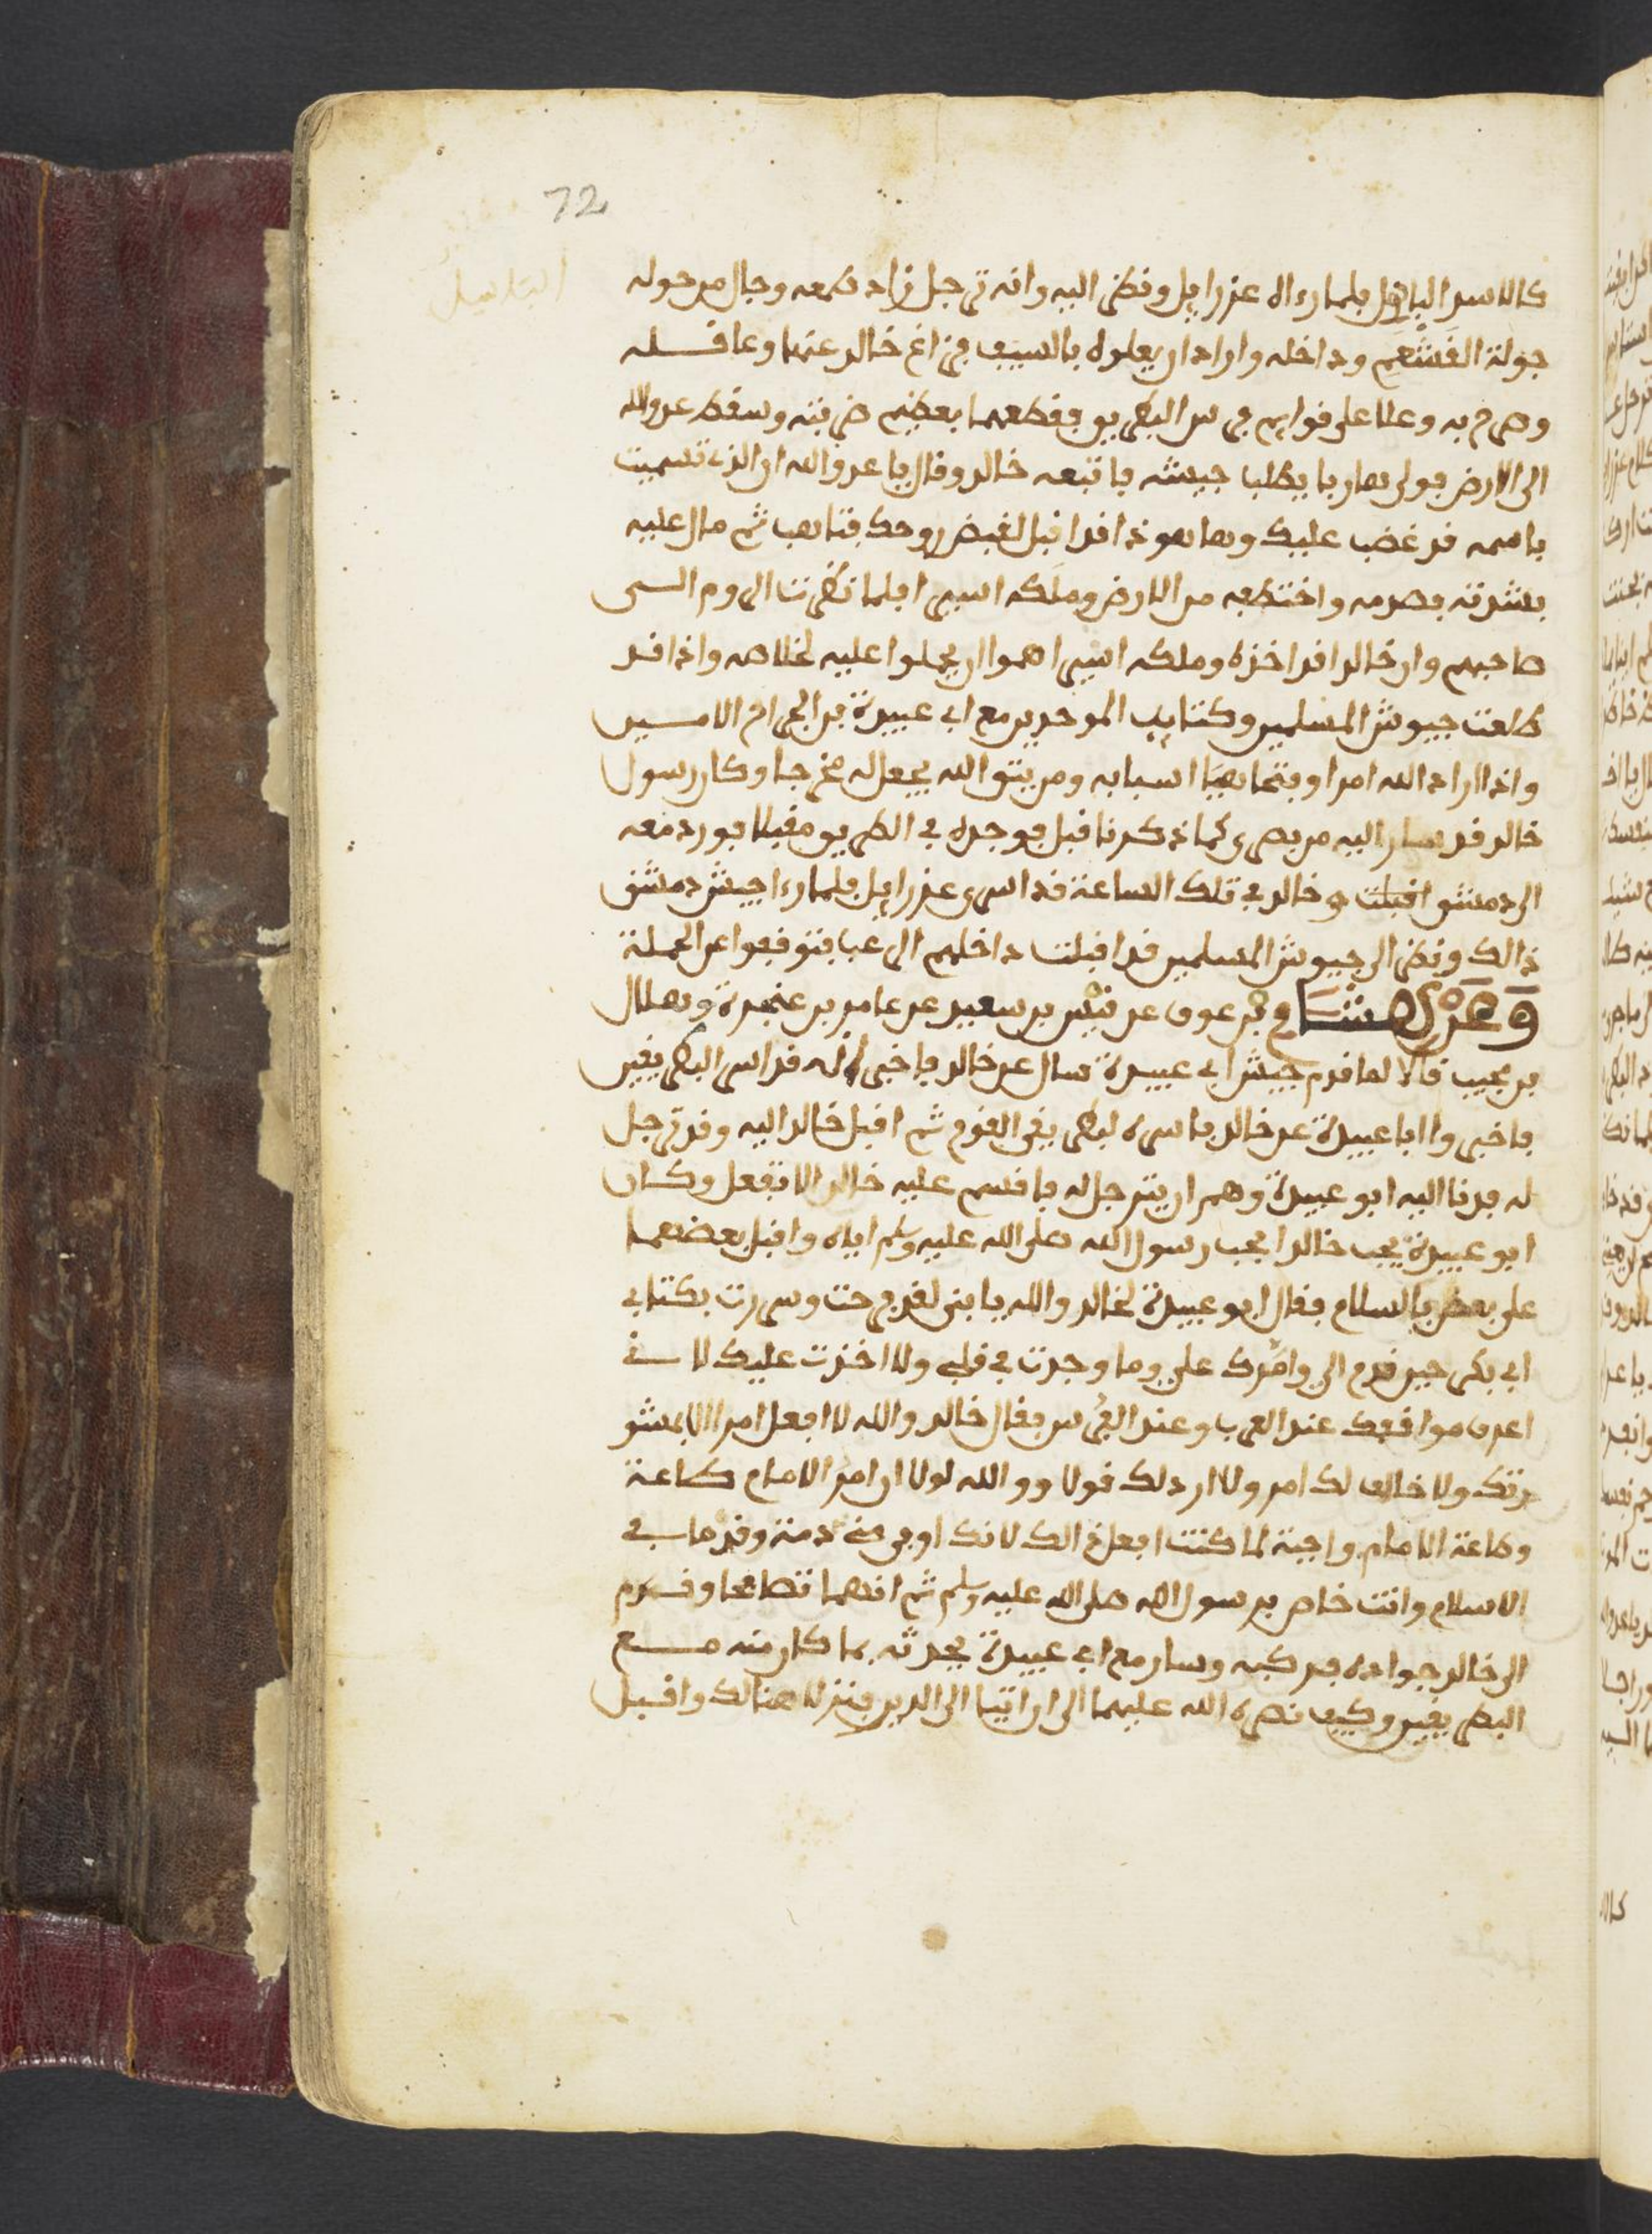 72
الباسل
كالاسد الباهل فلما رءاه عزرايل ونظر اليه وانه ترجل زاد طمعه وجال من حوله
جولة القشعم وداخله واراد ان يعلوه بالسيف فزاغ خالد عنها وعاقله
وصرخ به وعلا على قوايم فرس البطريق فقطعهما بعظيم ضربته وسقط عدو الله
الى الارض فولى هاربا يطلب جيشه فاتبعه خالد وقال يا عدو الله ان الذي تسميت
باسمه قد غضب عليك وها هوذا قد اقبل لقبض روحك فتاهب ثم مال عليه
بشدته فصرمه واختطفه من الارض وملكه اسيرا فلما نظرت الروم الى
صاحبهم وان خالدا قد اخذه وملكه اسيرا هموا ان يحملوا عليه لخلاصه واذا قد
طلعت جيوش المسلمين وكتايب الموحدين مع ابي عبيدة بن الجراح الامين
واذا اراد الله امرا وفتحا هيا اسبابه ومن يتق الله يجعل له مخرجا وكان رسول
خالد قد سار اليه من بصرى كما ذكرنا قبل فوجده في الطريق مقبلا فورد معه
الى دمشق اقبلت وخالد في تلك الساعة قد اسر عزرايل فلما رءا جيش دمشق
ذالك ونظر الى جيوش المسلمين قد اقبلت داخلهم الرعب فتوقفوا عن الحملة
وعن هشام بن عوف عن قيس بن سعيد عن عامر بن عنجدة وهلال
بن مجيب قالا لما قدم جيش ابي عبيدة سال عن خالد فاخبر انه قد اسر البطريقين
فاخبروا ابا عبيدة عن خالد باسره لبطريقي القوم ثم اقبل خالد اليه وقد ترجل
له فدنا اليه ابو عبيدة وهم ان يترجل له فاقسم عليه خالد الا تفعل وكان
ابو عبيدة يحب خالدا لحب رسول الله صلى الله عليه وسلم اياه واقبل بعضهما
على بعض بالسلام فقال ابو عبيدة لخالد والله يا بني لقد فرحت وسررت بكتاب
ابي بكر حين قدم الي وامرك علي وما وجدت في قلبي ولا اخذت عليك لاني
اعرف مواقفك عند العرب وعند الفرس فقال خالد والله لا افعل امرا الا بمشو
رتك ولا خالف لك امر ولا ارد لك قولا ووالله لولا ان امر الامام طاعة
وطاعة الامام واجبة لما كنت افعل ذالك لانك اوفى مني ذمة وقدما في
الاسلام وانت خاص برسول الله صلى الله عليه وسلم ثم انهما تصافحا وقدم
الى خالد جواده فركبه وسار مع ابي عبيدة يحدثه بما كان منه مع
البطريقين وكيف نصره الله عليهما الى ان اتيا الى الدير فنزلا هنالك واقبل